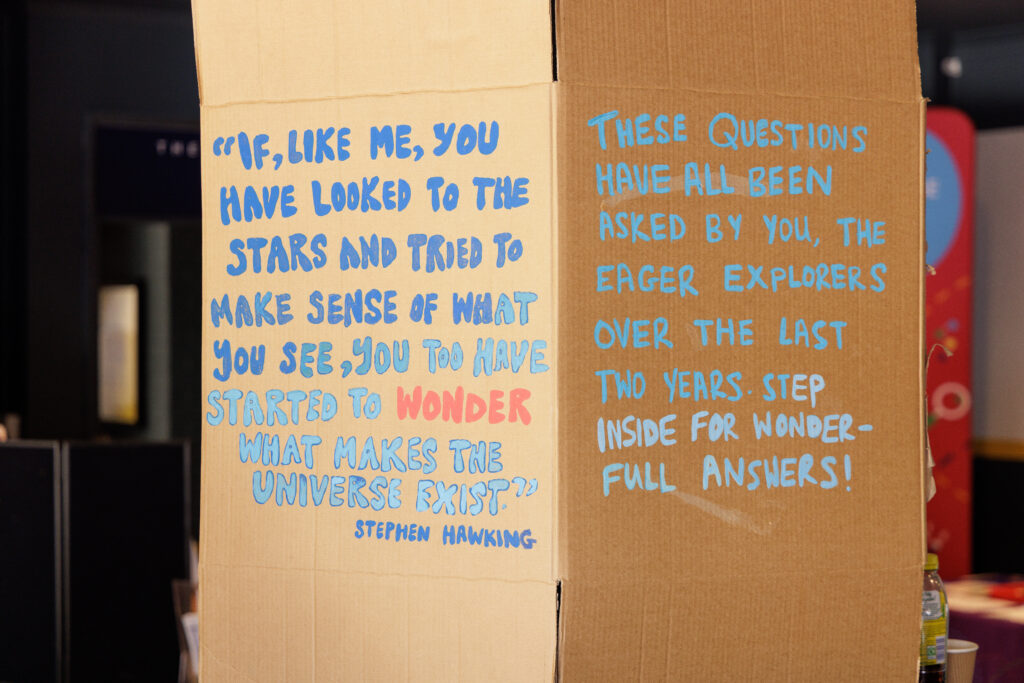 "IF, LIKE ME, YOU
HAVE LOOKED TO THE
STARS AND TRIED TO
MAKE SENSE OF WHAT
YOU SEE, YOU TOO HAVE
STARTED TO WONDER
WHAT MAKES THE
UNIVERSE EXIST."
STEPHEN HAWKING
THESE QUESTIONS
HAVE ALL BEEN
ASKED BY YOU, THE
EAGER EXPLORERS
OVER THE LAST
TWO YEARS. STEP
INSIDE FOR WONDER-
FULL ANSWERS!